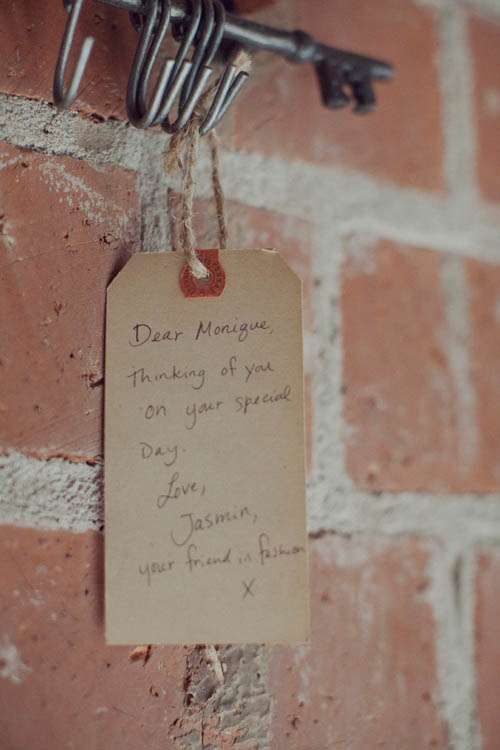 Dear Monique,
Thinking of you
on your special
Day.
Love,
Jasmin,
your friend in fashion
X